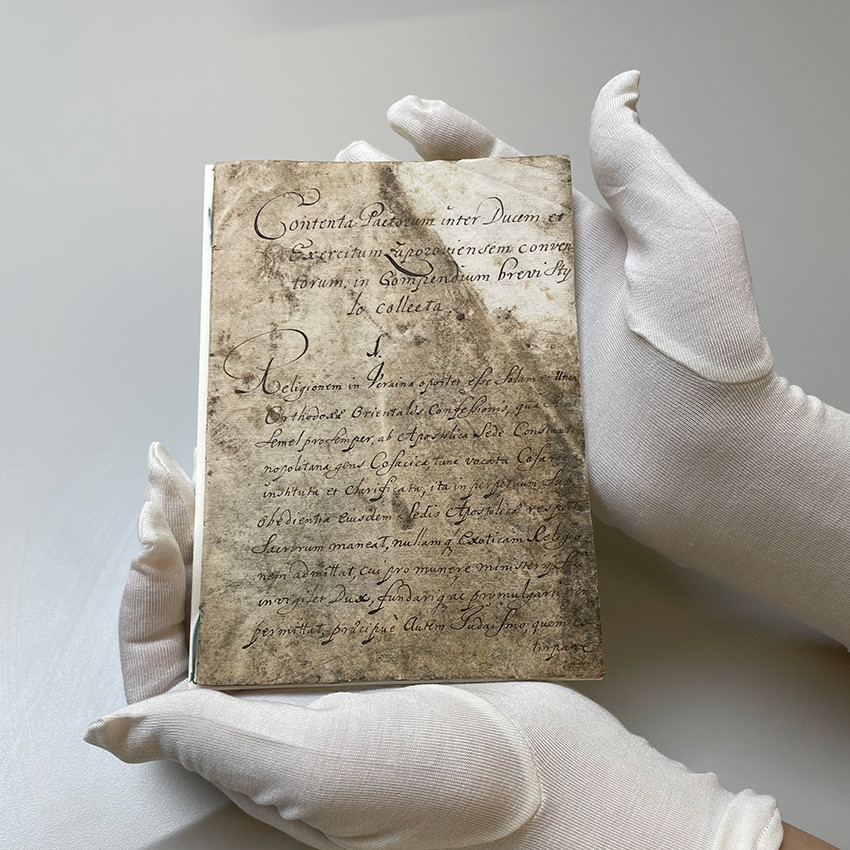 Contenta Pactorum inter Ducem et
Exercitum Zaporoviensem conven
torum, in Compendium brevi Sty
lo collecta.
1.
Religionem in Ucraina oportet esse Solam et Unam
Orthodoxæ Orientalis Confessionis, qua
semel pro semper, ab Apostolica Sede Constanti
nopolitana gens Cosacica, tunc vocata Cosarica
instituta et clarificata, ita in perpetuum Sub
Obedientia eiusdem Sedis Apostolicæ respectu
Sacrorum maneat, nullamq Exoticam Religio
nem admittat, cui pro munere ministerij Sui
invigilet Dux, fundariq ac promulgari non
permittat, præcipuè Autem Judaismo, quem
tirpare